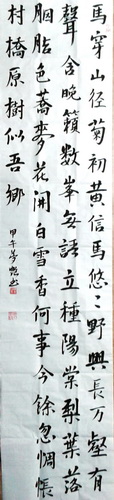 馬穿山径菊初黄信馬悠々野興長万壑有
聲含晚籟數峯無語立斜陽棠梨葉落
胭脂色蕎麥花開白雪香何事今餘忽惆悵
村橋原樹似吾鄉
甲午